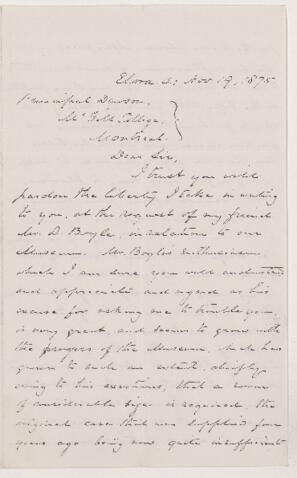 Elora O., Nov 19, 1875
Principal Dawson,
McGill College,
Montreal.
Dear Sir,
I trust you will
pardon the liberty I take in writing
to you, at the request of my friend
Mr. D. Boyle, in relation to our
Museum. Mr. Boyle's enthusiasm,
which I am sure you will understand
and appreciate, and regard as his
excuse for asking me to trouble you,
is very great, and seems to grow with
the progress of the Museum, which has
grown to such an extent, chiefly
owing to his exertions, that a room
of considerable size is required, the
original cases that were supplied four
years ago being now quite insufficient